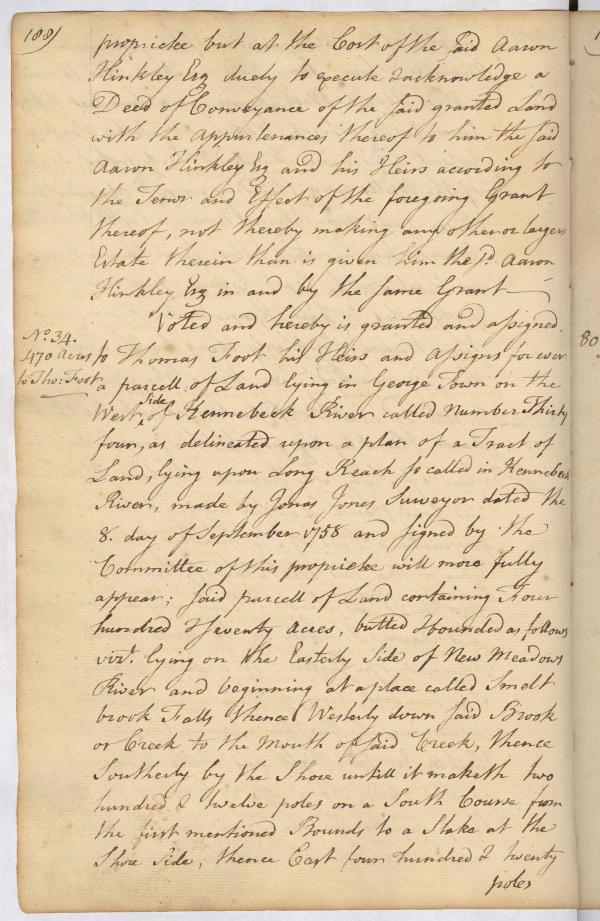 188)
proprictee but at the Cost of the said Aaron
Hinkley Esq duely to execute & acknowledge a
Deed of Conveyance of the said granted Land
with the appurtenances thereof to him the said
Aaron Hinkley Esq and his Heirs according to
the Tenor and Effect of the foregoing Grant
thereof, not thereby making any other or larger
Estate therein than is given him the sd. Aaron
Hinkley Esq in and by the same Grant —
Voted and hereby is granted and assigned
No. 34.
470 Acres
to Tho: Foot
to Thomas Foot his Heirs and Assigns for ever
a parcell of Land lying in George Town on the
West Side of Kennebeck River called Number Thirty
four, as delineated upon a plan of a Tract of
Land, lying upon Long Reach so called in Kennebeck
River, made by Jonas Jones Surveyor dated the
8. day of September 1758 and signed by the
Committee of this proprictee will more fully
appear; said parcell of Land containing Four
hundred & seventy Acres, butted & bounded as follows
vizt. lying on the Easterly Side of New Meadows
River and beginning at a place called Smelt
brook Falls thence Westerly down said Brook
or Creek to the Mouth of said Creek, thence
Southerly by the Shore untill it maketh two
hundred & twelve poles on a South Course from
the first mentioned Bounds to a Stake at the
Shore Side, thence East four hundred & twenty
poles
80